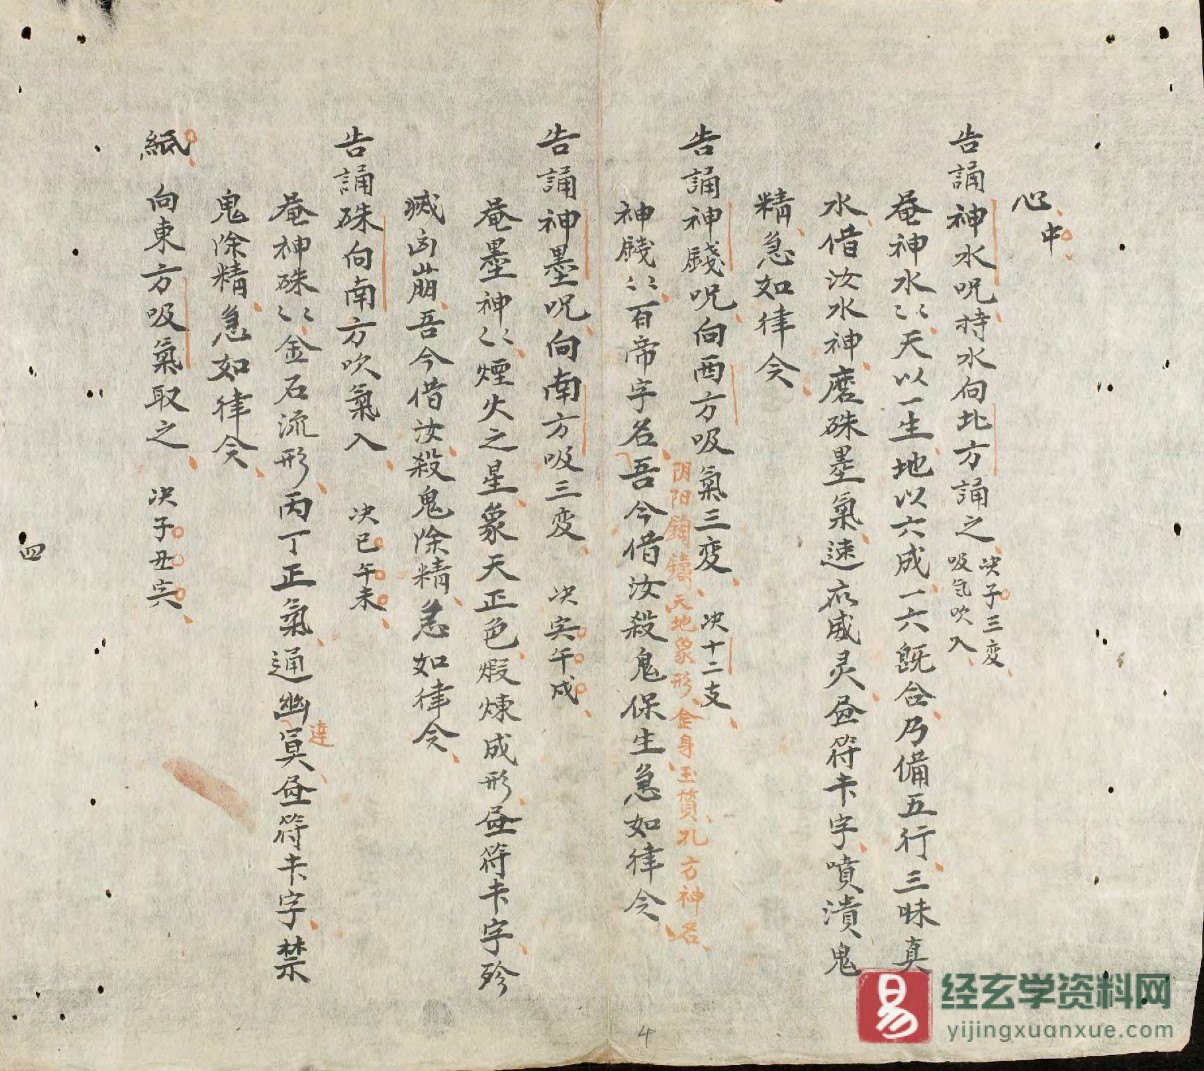 心中
告誦神水呪持水向北方誦之、决子三变、吸气吹入、
菴神水〻天以一生、地以六成、一六既合、乃備五行、三昧真
水、借汝水神、磨硃墨氣、速应威灵、昼符卡字、噴潰鬼
精、急如律令、
告誦神錢呪、向西方吸氣三变、决十二支、
阴阳鑄天地象形、金身玉質、孔方神名、
神錢〻百帝字名、吾今借汝、殺鬼保生、急如律令、
告誦神墨呪、向南方吸三变、决寅午戌、
菴墨神〻煙火之星、象天正色、煅煉成形、昼符卡字、殄
滅凶崩、吾今借汝、殺鬼除精、急如律令、
告誦硃向南方吹氣入、决巳午未、
菴神硃〻金石流形、丙丁正氣、通幽冥、昼符卡字、禁
達
鬼除精、急如律令、
紙、向東方吸氣取之、决子丑寅、
四
4
易
经玄学资料网
yijingxuanxue.com